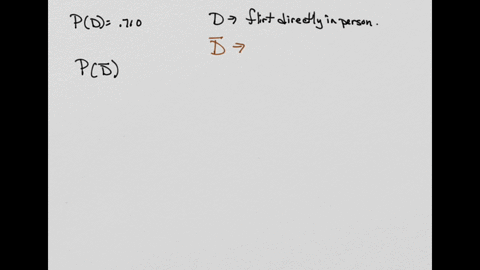 P(D) = .710 D → flirt directly in person.
D̅ →
P(D̅)